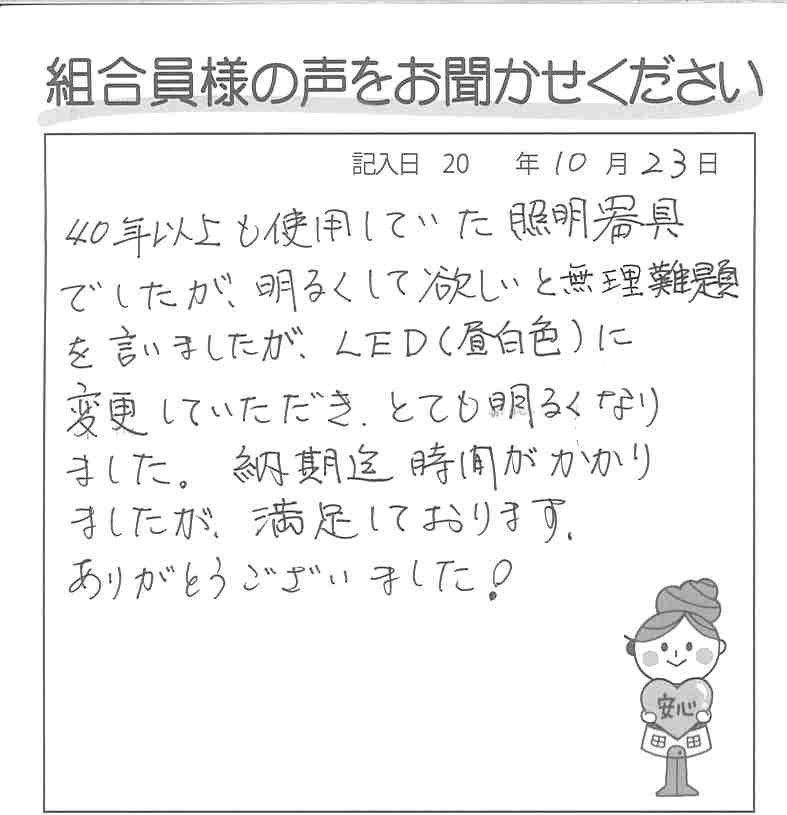 組合員様の声をお聞かせください
記入日 20 年10月23日
40年以上も使用していた照明器具
でしたが、明るくして欲しいと無理難題
を言いましたが、LED(昼白色)に
変更していただき、とても明るくなり
ました。納期迄時間がかかり
ましたが、満足しております。
ありがとうございました!
安心